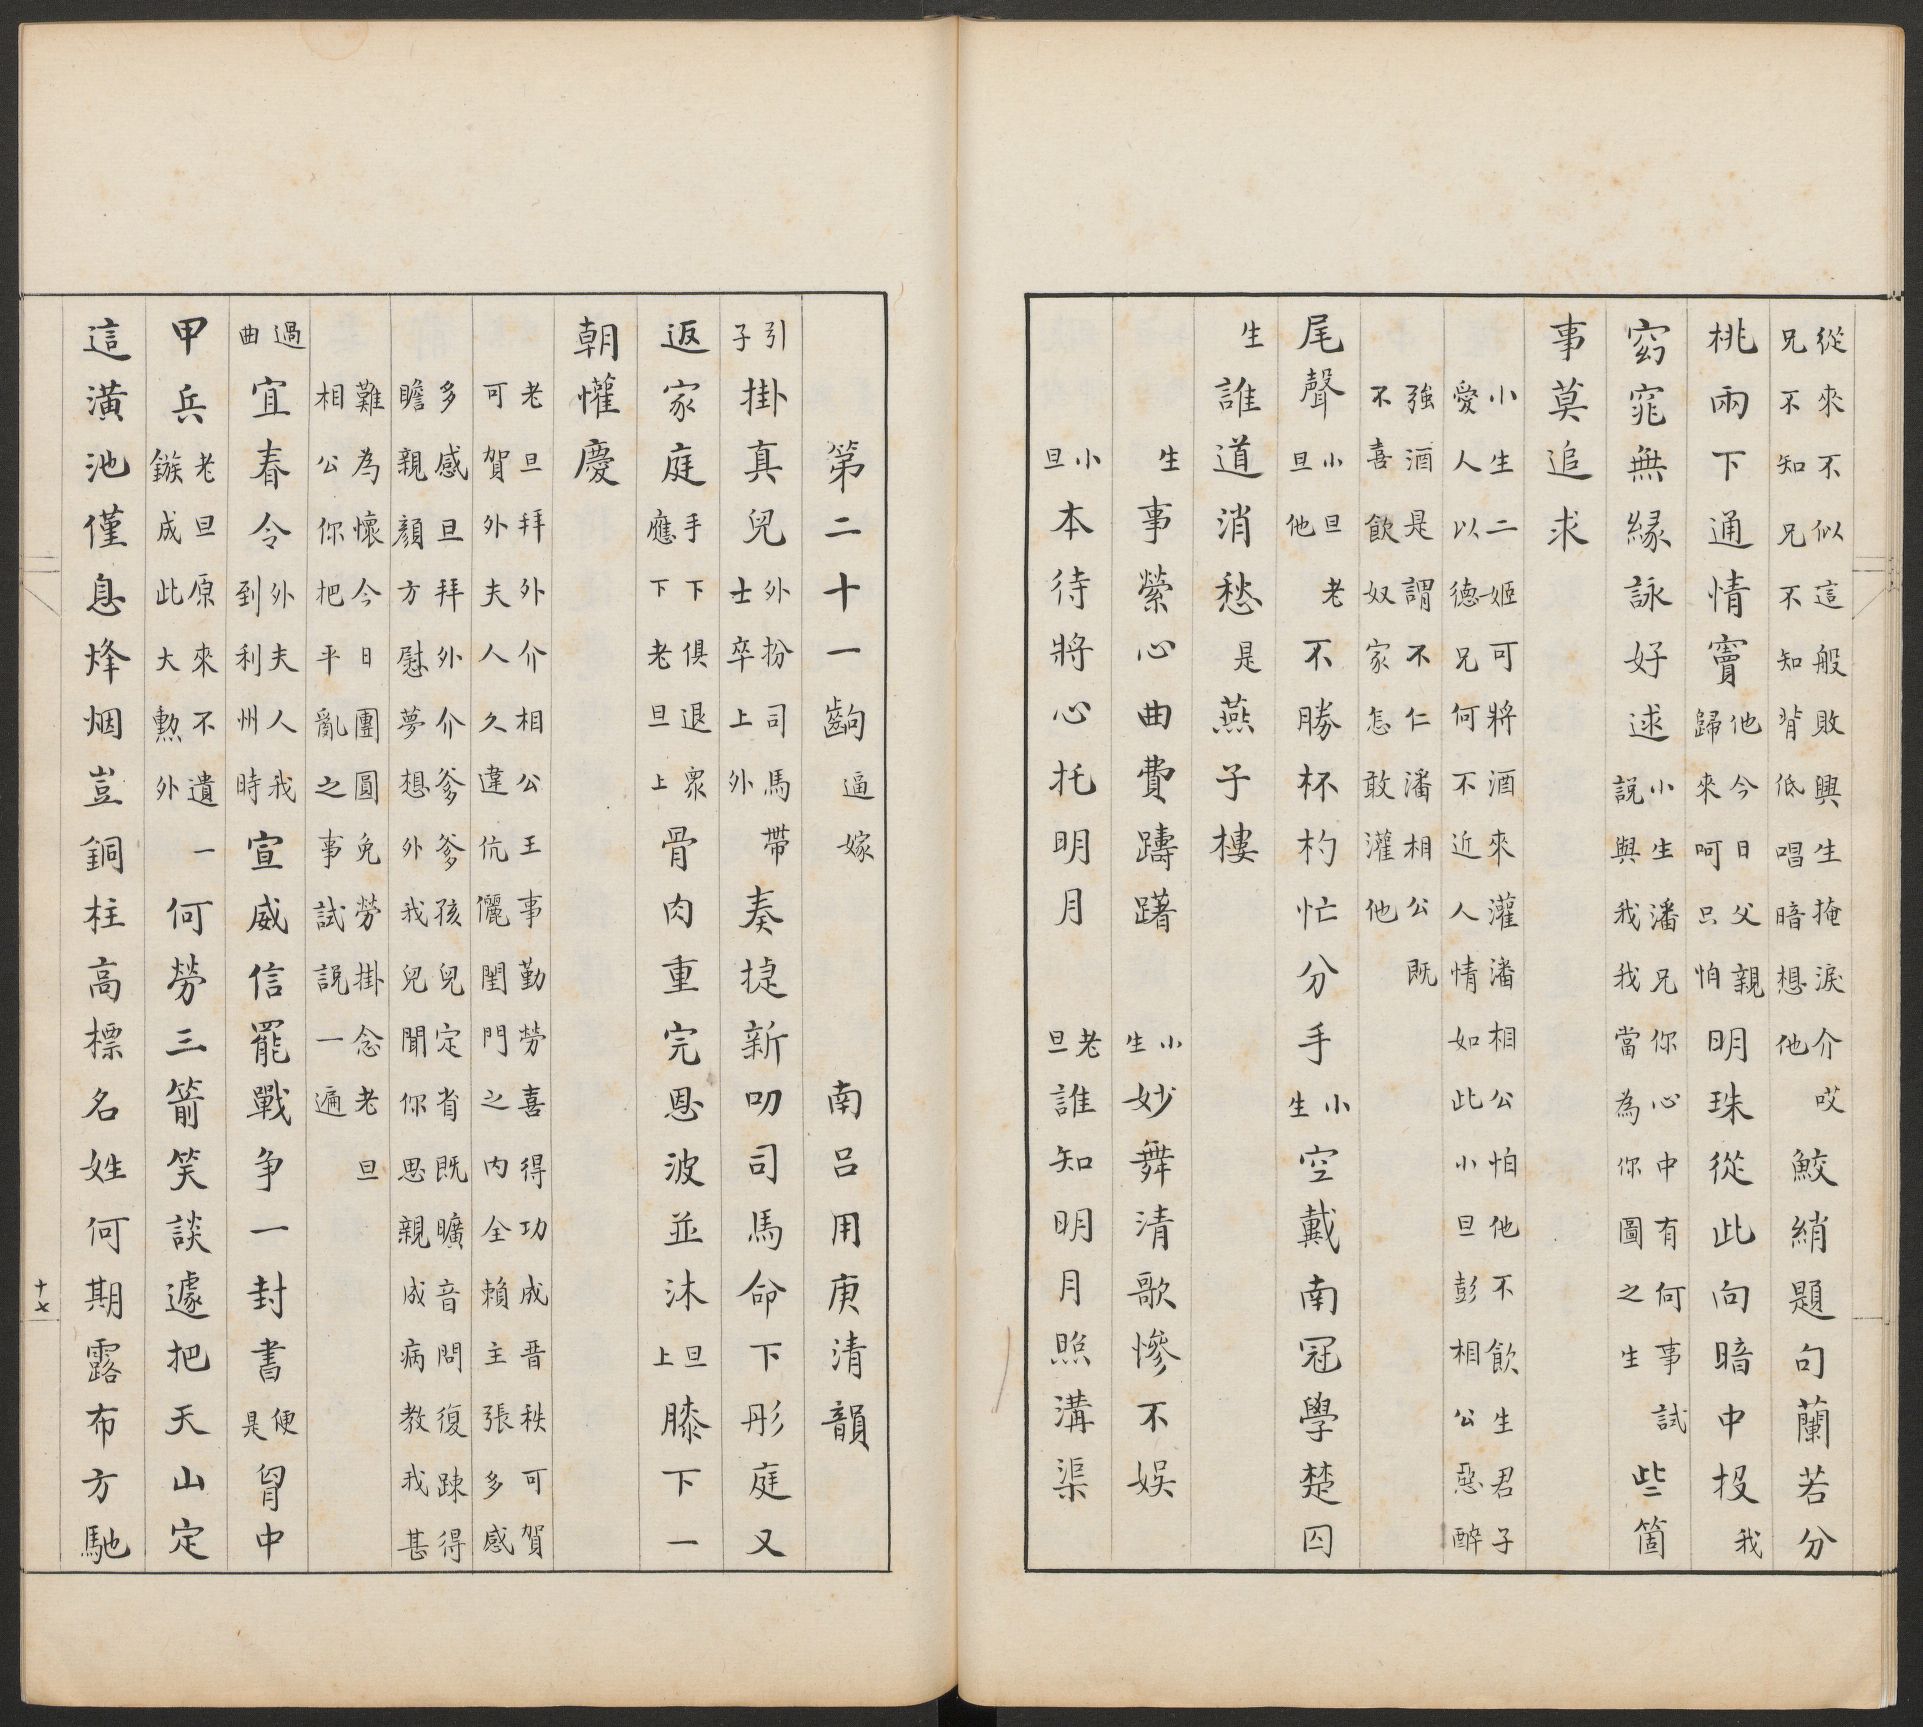 從來不似這般敗興生掩淚介哎
兄不知兄不知背低唱暗想他
鮫綃題句蘭若分
桃兩下通情竇
他今日父親
歸來呵只怕
明珠從此向暗中投
我
窈窕無緣詠好逑
小生潘兄你心中有何事試
說與我我當為你圖之生
些箇
事莫追求
小生二姬可將酒來灌潘相公怕他不飲生君子
愛人以德兄何不近人情如此小旦彭相公惡醉
強酒是謂不仁潘相公既
不喜飲奴家怎敢灌他
尾聲
小旦
旦他
老
不勝杯杓忙分手
小
生
空戴南冠學楚囚
生
誰道消愁
是
燕子樓
生
事縈心曲費躊躇
小
生
妙舞清歌慘不娛
小
旦
本待將心托明月
老
旦
誰知明月照溝渠
第二十一齣
逼嫁
南呂用庚清韻
引
子
掛真兒
外扮司馬帶
士卒上外
奏捷新叨司馬命下彤庭又
返家庭
手下俱退眾
應下老旦上
骨肉重完恩波並沐
旦
上
膝下一
朝懽慶
老旦拜外介相公王事勤勞喜得功成晋秩可賀
可賀外夫人久違伉儷閨門之內全賴主張多感
多感旦拜外介爹爹孩兒定省既曠音問復踈得
瞻親顏方慰夢想外我兒聞你思親成病教我甚
難為懷今日團圓免勞掛念老旦
相公你把平亂之事試說一遍
過
曲
宜春令
外夫人我
到利州時
宣威信罷戰争一封書
便
是
胷中
甲兵
老旦原來不遺一
鏃成此大勲外
何勞三箭笑談遽把天山定
這潢池僅息烽烟豈銅柱高標名姓何期露布方馳
十七